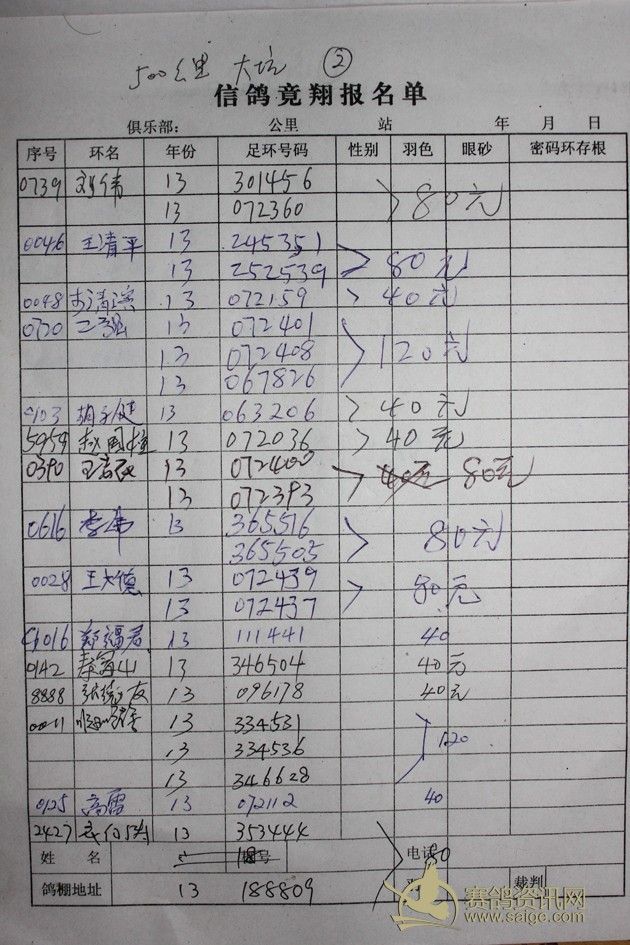 500公里 大坑 ②
信鸽竟翔报名单
俱乐部: 公里 站 年 月 日
序号 环名 年份 足环号码 性别 羽色 眼砂 密码环存根
0739 刘伟 13 301456
13 072360 80元
0046 王清平 13 245351
13 252539 80元
0048 13 072159 40元
0720 13 072401
13 072408 120元
13 067826
0103 胡永健 13 063206 40元
5959 13 072036 40元
0390 13 072400 40元 80元
13 072393
0616 李伟 13 365516 80元
365505
0028 王大德 13 072439 80元
13 072437
郑福君 13 111441 40
0142 13 346504 40元
8888 13 096178 40元
0011 13 334531
13 334536 120
13 346628
0125 高雷 13 072112 40
2427 13 353444
姓 名 电话 80
鸽棚地址 13 188809 裁判
赛鸽资讯网
www.saige.com